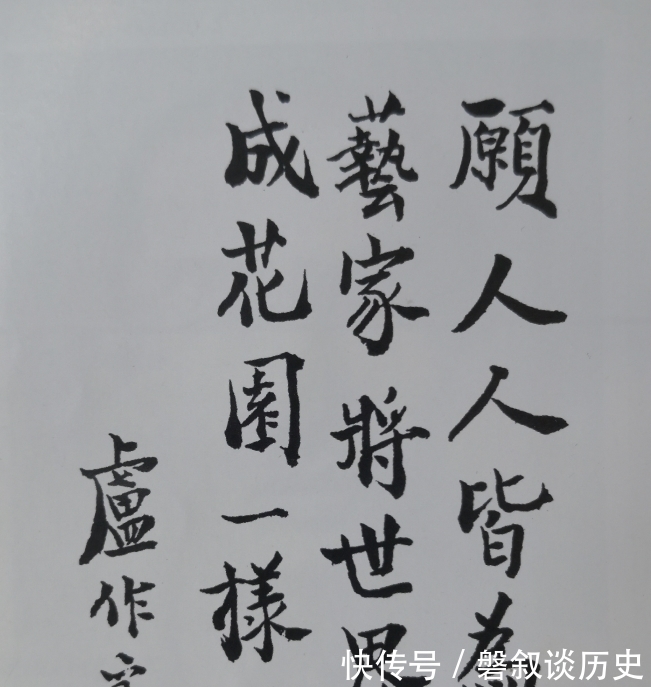 願人人皆為
藝家將世界
成花園一樣
盧作孚
快传号 / 磐叙谈历史